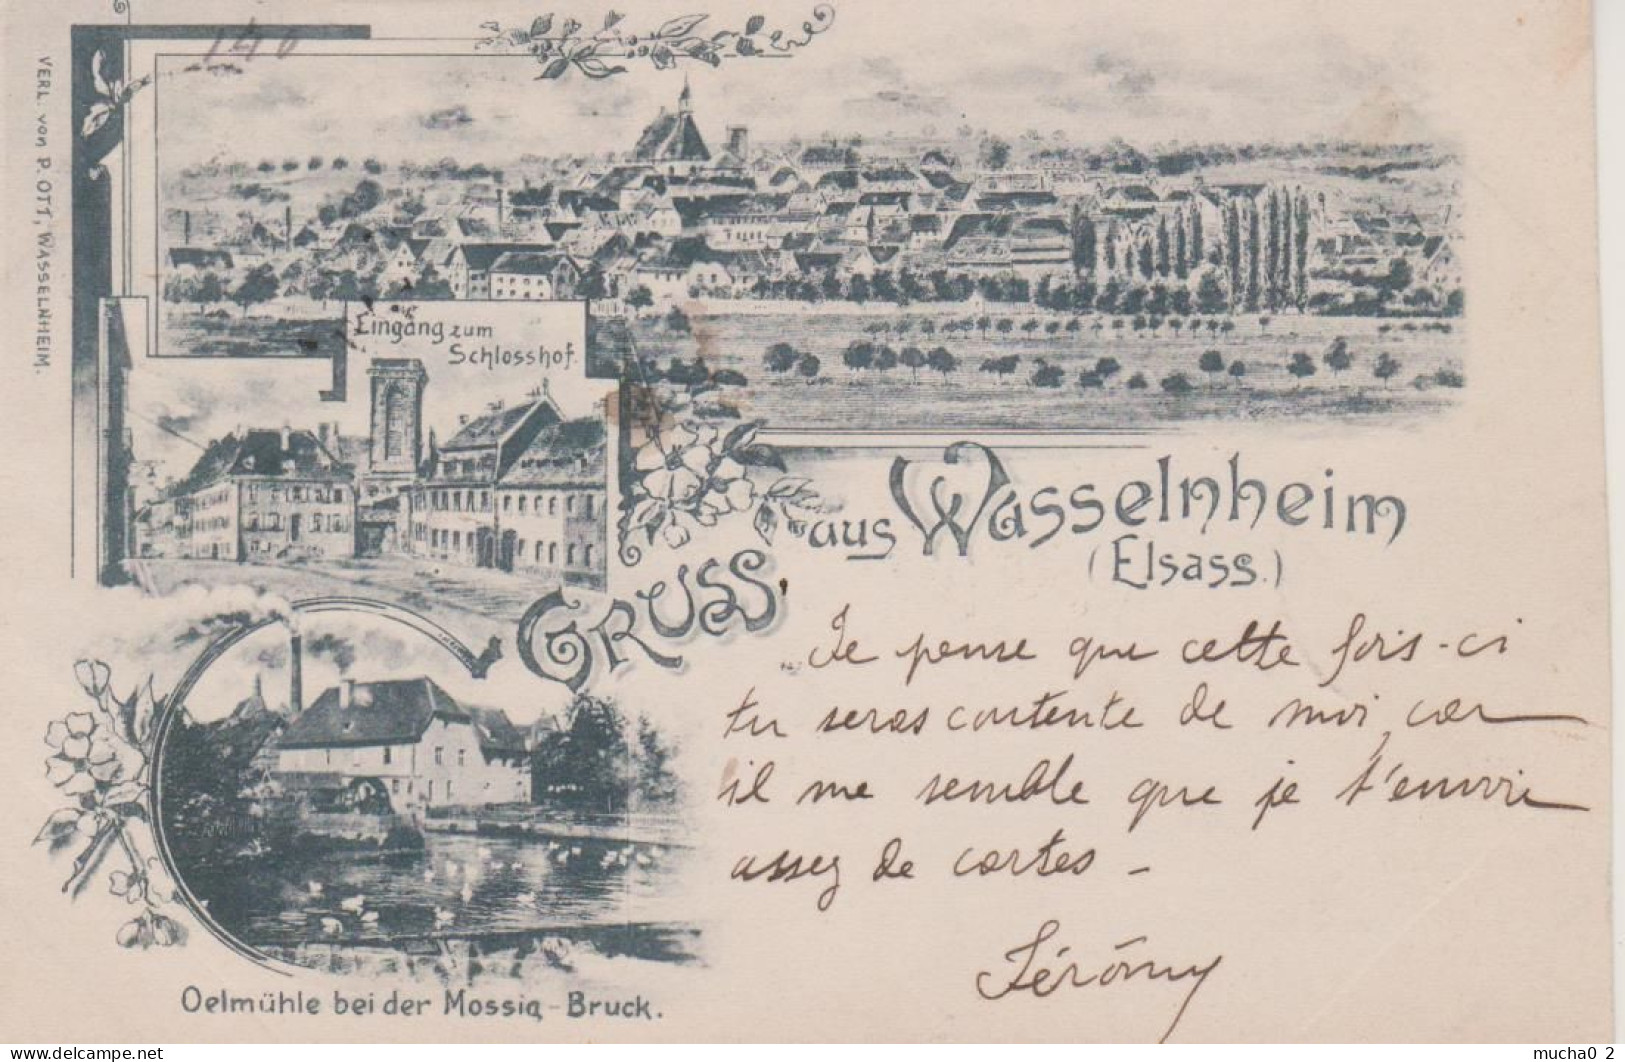 140
VERL. von P. OTT, WASSELNHEIM.
Eingang zum
Schlosshof.
GRUSS
aus Wasselnheim
(Elsass.)
Je pense que cette fois-ci
tu seras contente de moi, car
il me semble que je t'envoie
assez de cartes -
Jérômy
Oelmühle bei der Mossig - Bruck.
www.delcampe.net
mucha0_2